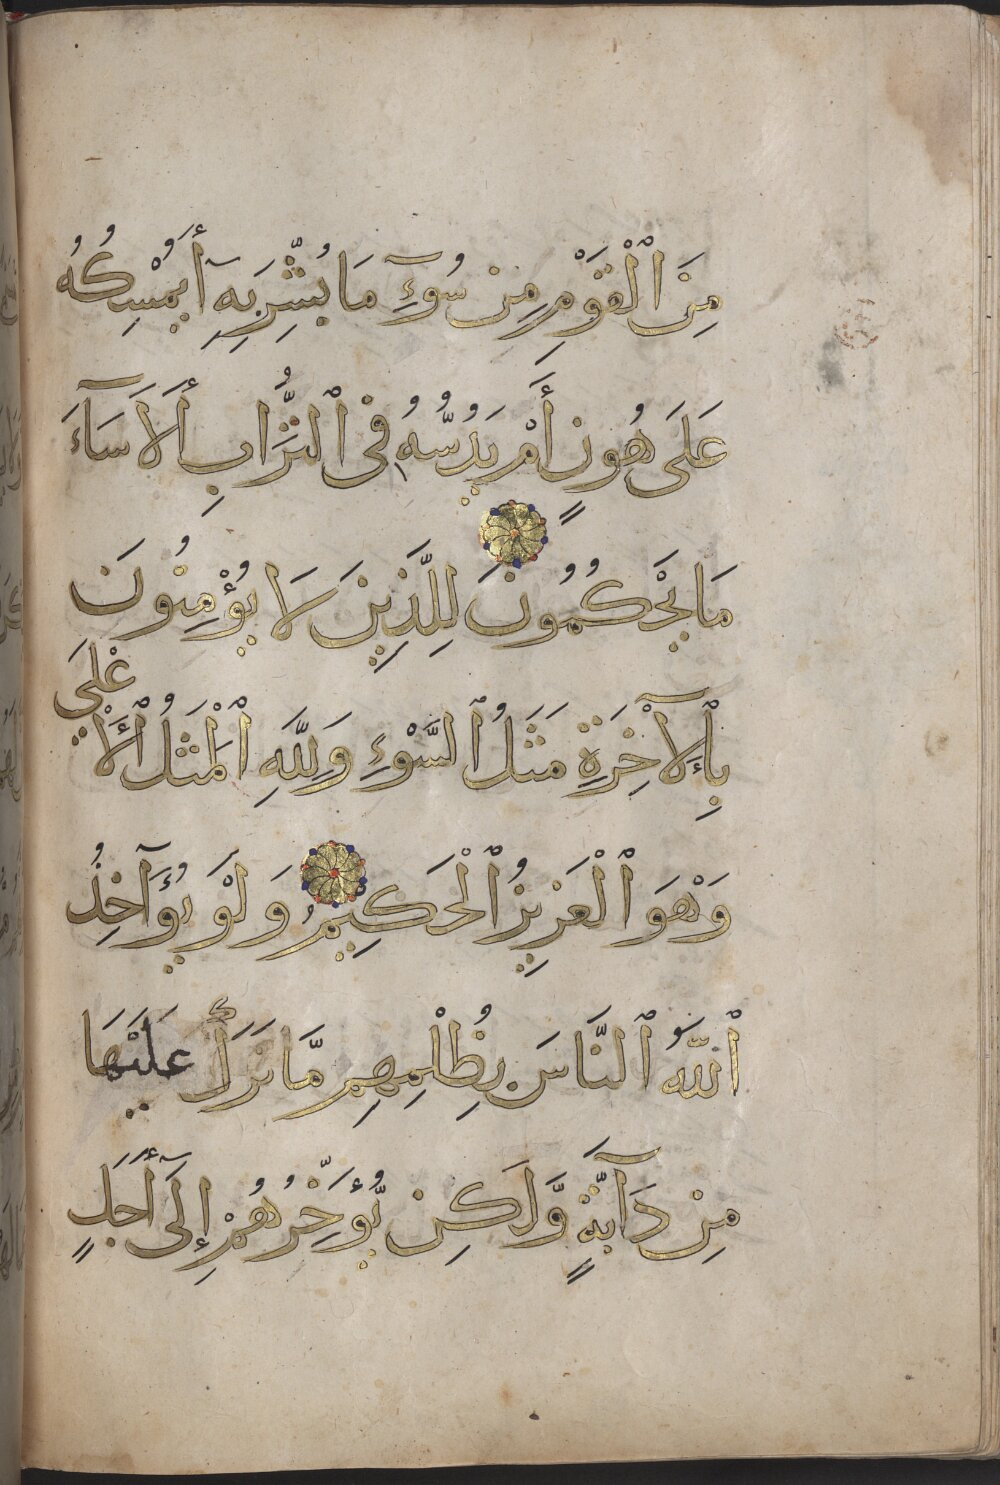 مِنَ ٱلْقَوْمِ مِن سُوٓءِ مَا بُشِّرَ بِهِۦٓ أَيُمْسِكُهُۥ
عَلَىٰ هُونٍ أَمْ يَدُسُّهُۥ فِى ٱلتُّرَابِ أَلَا سَآءَ
مَا يَحْكُمُونَ لِلَّذِينَ لَا يُؤْمِنُونَ
بِٱلْآخِرَةِ مَثَلُ ٱلسَّوْءِ وَلِلَّهِ ٱلْمَثَلُ ٱلْأَعْلَىٰ
وَهْوَ ٱلْعَزِيزُ ٱلْحَكِيمُ وَلَوْ يُؤَآخِذُ
ٱللَّهُ ٱلنَّاسَ بِظُلْمِهِم مَّا تَرَكَ عَلَيْهَا
مِن دَآبَّةٍ وَلَكِن يُؤَخِّرُهُمْ إِلَىٰٓ أَجَلٍ